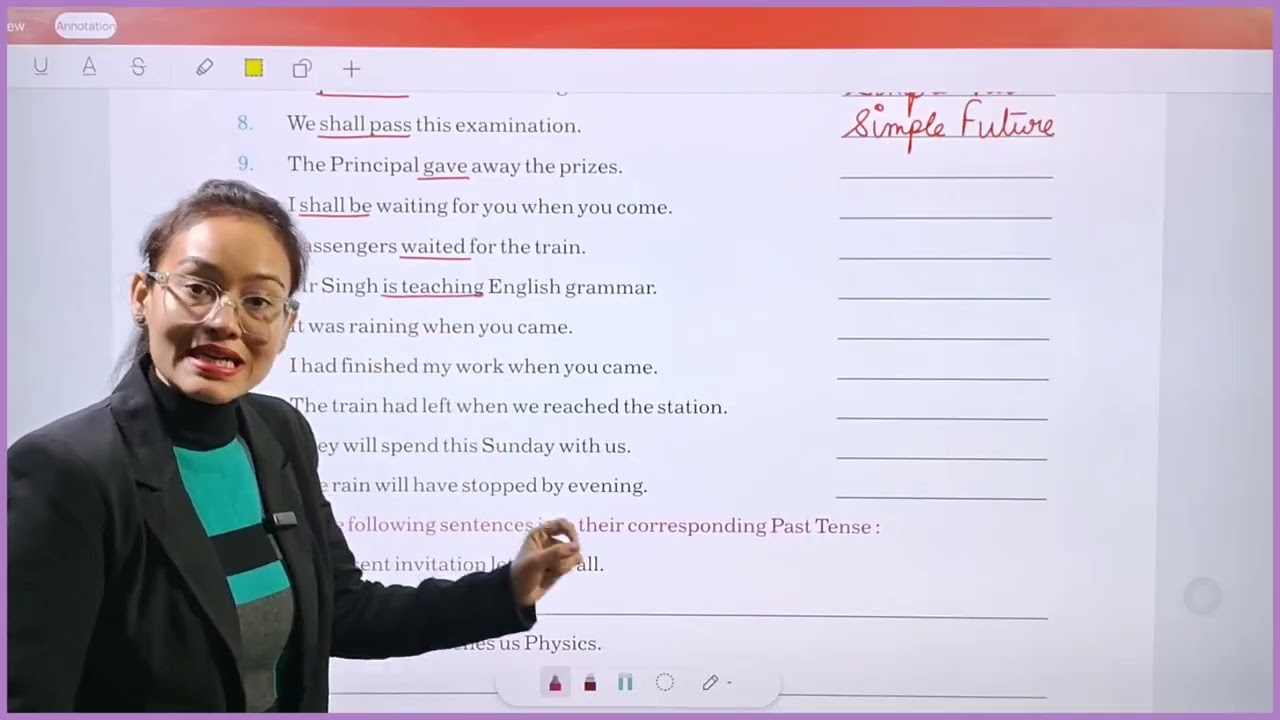 ew Annotation
U A S
8. We shall pass this examination. Simple Future
9. The Principal gave away the prizes.
I shall be waiting for you when you come.
assengers waited for the train.
r Singh is teaching English grammar.
It was raining when you came.
I had finished my work when you came.
The train had left when we reached the station.
ey will spend this Sunday with us.
e rain will have stopped by evening.
e following sentences their corresponding Past Tense :
ent invitation all.
us Physics.